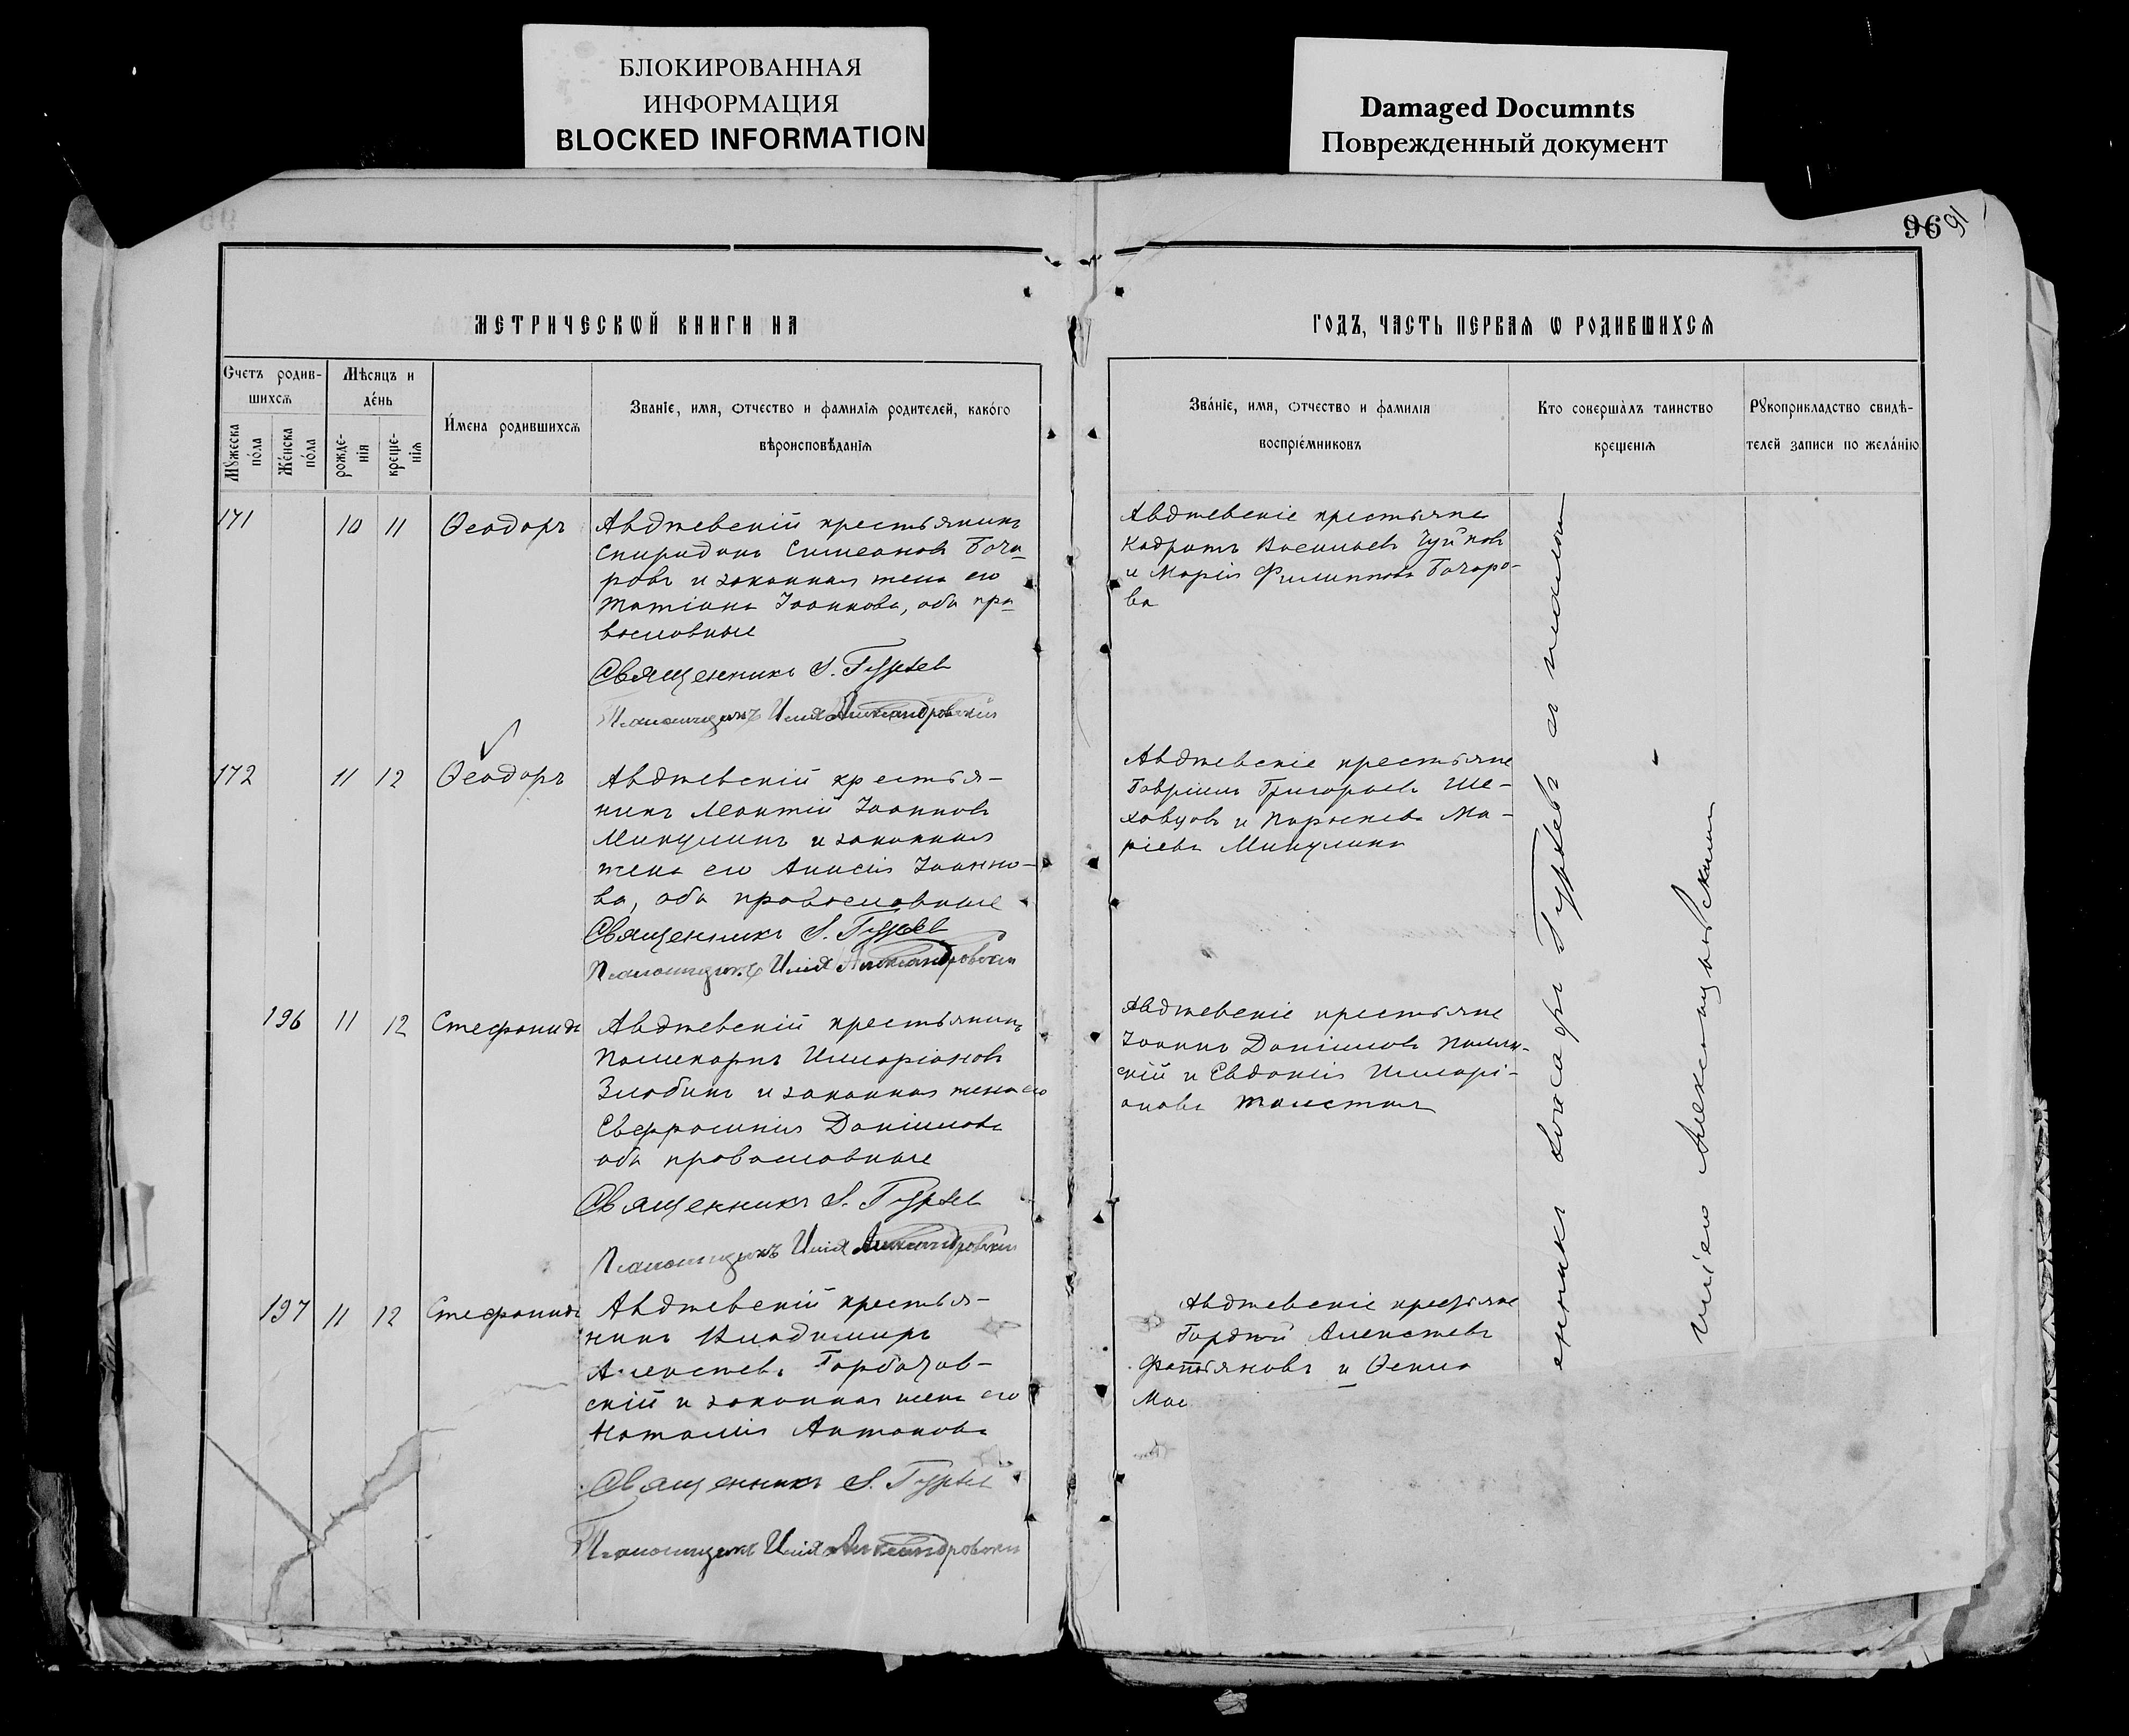 БЛОКИРОВАННАЯ
ИНФОРМАЦИЯ
BLOCKED INFORMATION
Damaged Documnts
Поврежденный документ
96 91
МЕТРИЧЕСКѠЙ КНИГИ НА
ГОДЪ, ЧАСТЬ ПЕРВАѦ Ѡ РОДИВШИХСѦ
Счетъ родив-
шихсѧ
Мѣсяцъ и
де́нь
Мꙋжеска
по́ла
Же́нска
по́ла
рожде-
нїѧ
креще-
нїѧ
И́мена родившихсѧ
Званїе, имя, ѻтчество и фамилїѧ родителей, како́го
вѣроисповѣ́данїѧ
Зва́нїе, имя, ѻтчество и фамилїя
воспрїе́мниковъ
Кто соверша́лъ таинство
крещенїѧ
Рꙋкоприкладство свидѣ-
телей записи по жела́нїю
171 10 11 Ѳеодоръ
Авдѣевскій крестьянинъ
Спиридонъ Симеоновъ Боча-
ровъ и законная жена его
Татіана Іоаннова, оба пра-
вославные
Священникъ І. Гурьевъ
Псаломщикъ Илія Александровскій
Авдѣевскіе крестьяне
Кодратъ Васильевъ Чуйковъ
и Марія Филиппова Бочаро-
ва
172 11 12 Ѳеодоръ
Авдѣевскій крестья-
нинъ Леонтій Іоанновъ
Микулинъ и законная
жена его Анисія Іоанно-
ва, оба православные
Священникъ І. Гурьевъ
Псаломщикъ Илія Александровскій
Авдѣевскіе крестьяне
Гавріилъ Григорьевъ Ше-
ховцовъ и Параскева Ма-
Микулина
196 11 12 Стефанида
Авдѣевскій крестьянинъ
Поликарпъ Иларіоновъ
Злобинъ и законная жена его
Евфросинія Даніилова
оба православные
Священникъ І. Гурьевъ
Псаломщикъ Илія Александровскій
Авдѣевскіе крестьяне
Іоаннъ Даніиловъ
и Евдокія Иларі-
онова Толстая
197 11 12 Стефанида
Авдѣевскій крестья-
нинъ Владимиръ
Алексѣевъ Горбачов-
скій и законная жена его
Наталія Антонова
Священникъ І. Гурьевъ
Псаломщикъ Илія Александровскій
Авдѣевскіе крестьяне
Гордѣй Алексѣевъ
Фатьяновъ и Ѳекла
Мас
енникъ Гурьевъ съ псалом
Иліею Александровскимъ